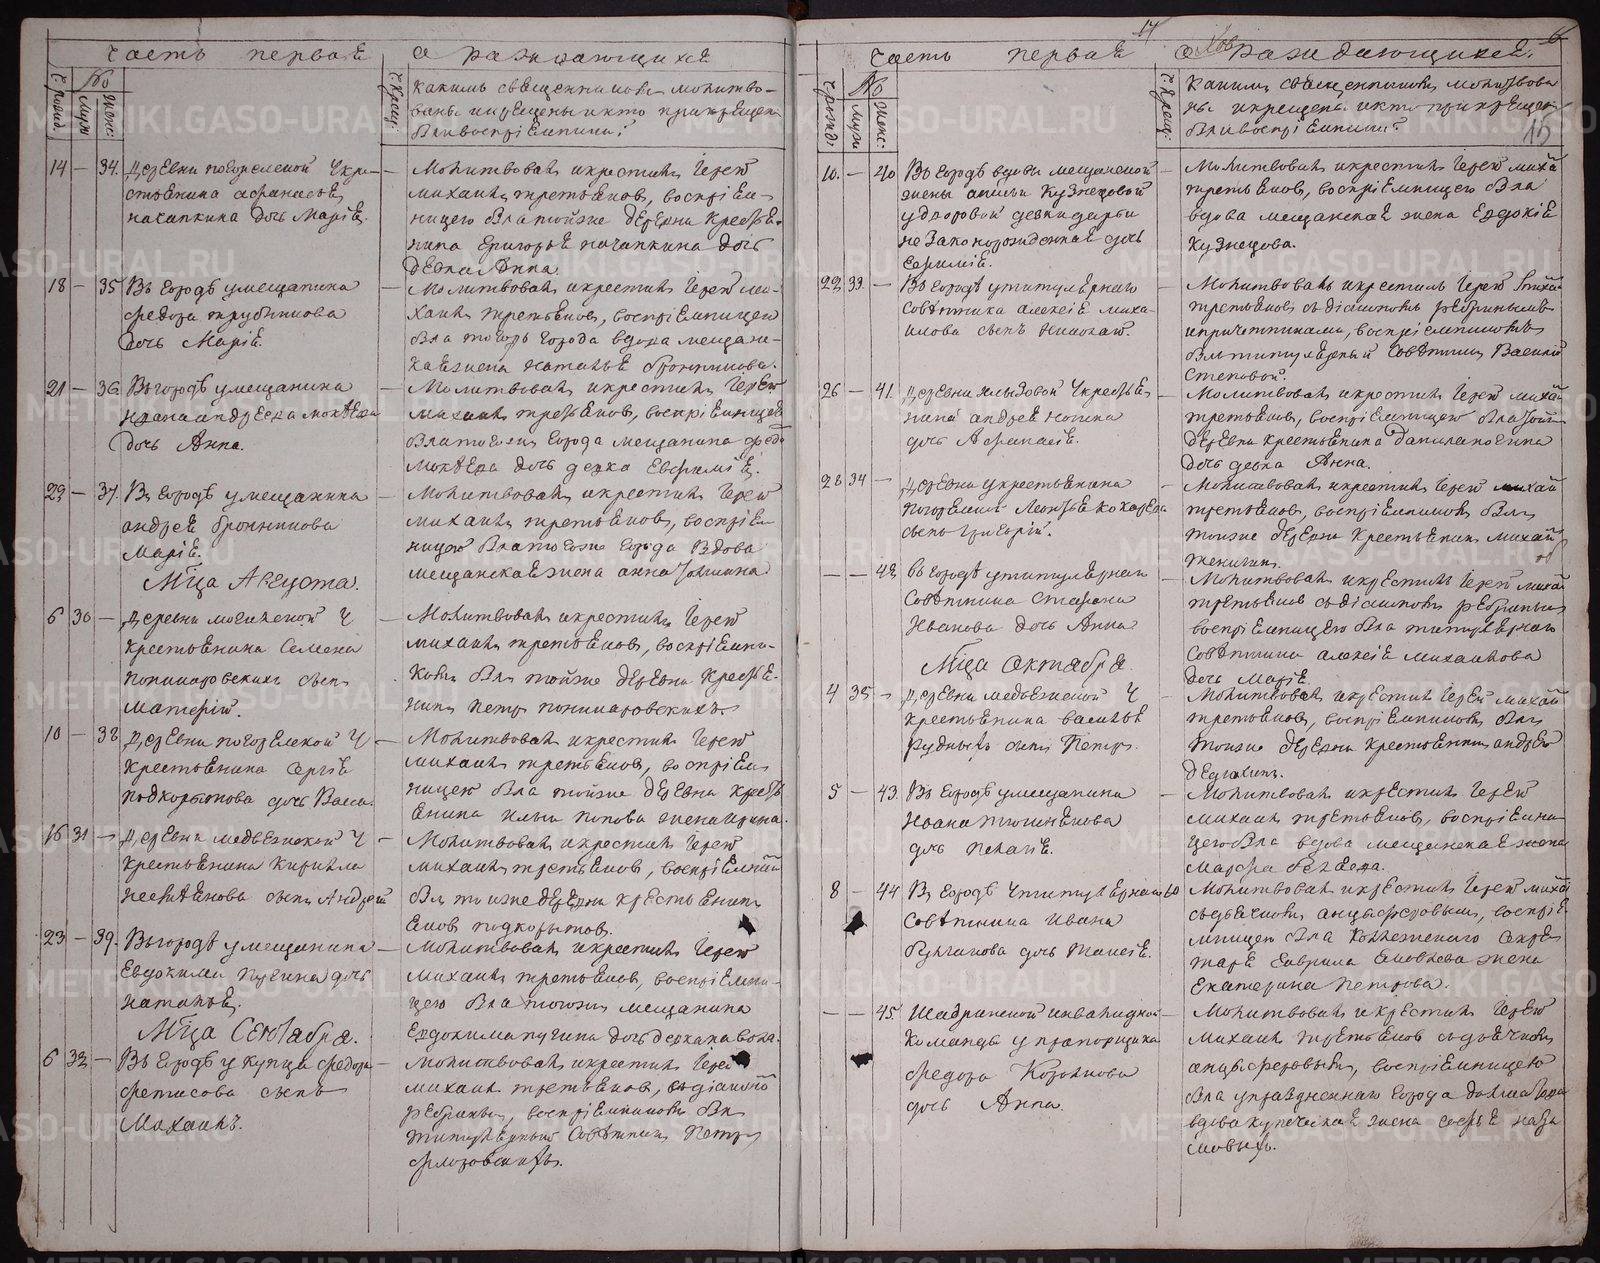 Часть первая о раждающихся
Ч: рожд:
№
Муж:
Женс:
Ч: Крещ:
Какимъ священникомъ молитво-
ваны и крещены и кто при крещен
были воспріемники?
14 — 34. Деревни погорелской у кре-
стьянина афанасья
начапкина дочь Марія.
Молитвовалъ и крестилъ Іерей
михаилъ третьяковъ, воспріем-
ницею была тойже деревни крестья-
нина григорья начапкина дочь
девка Анна.
18 — 35 Въ городѣ у мещанина
федора трубникова
дочь Марія.
Молитвовалъ и крестилъ Іерей ми-
хаилъ третьяковъ, воспріемницею
была тогожъ города вдова мещанс-
кая жена наталья бронникова.
21 — 36. Въ городѣ у мещанина
ивана андреева
дочь Анна.
Молитвовалъ и крестилъ Іерей
михаилъ третьяковъ, воспріемницею
была тогожъ города мещанина федо
дочь девка Евфимія.
29 — 37. Въ городѣ у мещанина
андрея бронникова
Марія.
Молитвовалъ и крестилъ Іерей
михаилъ третьяковъ, воспріем
ницею была тогоже города вдова
мещанская жена анна
Мца Августа.
6 30 — Деревни могилской у
крестьянина Семена
пономаровскихъ сынъ
Матерій.
Молитвовалъ и крестилъ Іерей
михаилъ третьяковъ, воспріемни-
комъ былъ тойже деревни крестья-
нинъ петръ пономаровскихъ
10 — 38 Деревни погорелской у
крестьянина Сергія
подкорытова дочь Васса.
Молитвовалъ и крестилъ Іерей
михаилъ третьяковъ, воспріем
ницею была тойже деревни кресть
янина ильи попова жена ирина.
16 31 — Деревни медвежской у
крестьянина Кирилла
сынъ Андрей
Молитвовалъ и крестилъ Іерей
михаилъ третьяковъ, воспріемни
былъ тоиже деревни крестьянинъ
яковъ подкорытовъ.
23 — 39. Въ городѣ у мещанина
Евдокима пугина дочь
наталья.
Молитвовалъ и крестилъ Іерей
михаилъ третьяковъ, воспріемни-
цею была тогожъ мещанина
Евдокима пугина дочь девка
Мца Сентября.
6 32 — Въ городѣ у купца федора
фетисова сынъ
Михаилъ.
Молитвовалъ и крестилъ Іерей
михаилъ третьяковъ, съ діакономъ
ребринымъ, воспріемникомъ былъ
титулярный Совѣтникъ Петръ
флоровскихъ.
17
Часть первая о раждающихся.
15
Ч: рожд:
№
Муж:
Женс:
Ч: Крещ:
Какимъ священникомъ молитвова
ны и крещены и кто при крещен
были воспріемники?
10. — 40 Въ городѣ вдовы мещанской
жены анисьи Кузнецовой
у дворовой девки дарьи
незаконорожденная дочь
Евфимія.
Молитвовалъ и крестилъ Іерей миха
третьяковъ, воспріемницею была
вдова мещанская жена Евдокія
Кузнецова.
22 33. — Въ городѣ у титулярнаго
Совѣтника алексѣя миха-
илова сынъ николай.
Молитвовалъ и крестилъ Іерей михаи
третьяковъ съ діакономъ ребринымъ
и причетниками, воспріемникомъ
былъ титулярный Совѣтникъ Василій
Степовой.
26 — 41. Деревни у крестья
нина андрея
дочь Афанасія.
Молитвовалъ и крестилъ Іерей михаи
третьяковъ, воспріемницею была той
деревни крестьянина данила
дочь девка Анна.
28 34 — Деревни у крестьянина
Леонтья кокарева
сынъ Григорій.
Молитвовалъ и крестилъ Іерей михаи
третьяковъ, воспріемникомъ былъ
тоиже деревни крестьянинъ михаи
— — 42. въ городѣ у титулярнаго
Совѣтника Стефана
Иванова дочь Анна
Молитвовалъ и крестилъ Іерей михаи
третьяковъ съ діакономъ ребринымъ
воспріемницею была титулярнаго
Совѣтника алексѣя михайлова
дочь Марія.
Мца Октября.
4 35 — Деревни медвежской у
крестьянина василья
рудныхъ сынъ Петръ.
Молитвовалъ и крестилъ Іерей михаи
третьяковъ, воспріемникомъ былъ
тоиже деревни крестьянинъ андрей
5 — 43. Въ городѣ у мещанина
Ивана
дочь Пелагія.
Молитвовалъ и крестилъ Іерей
михаилъ третьяковъ, воспріемни
цею была вдова мещанская жена
Марфа
8 — 44 Въ городѣ у титулярнаго
Совѣтника Ивана
дочь Таисія.
10 Молитвовалъ и крестилъ Іерей миха
съ дьячкомъ анцыферовымъ, воспріе-
мницею была Коллежскаго Секре
таря Гаврила Яковлева жена
Екатерина Петрова.
— — 45. Шадринской инвалидной
Команды у прапорщика
федора Королкова
дочь Анна.
Молитвовалъ и крестилъ Іерей
михаилъ третьяковъ съ дьячкомъ
анцыферовымъ, воспріемницею
была упраздненнаго города далматова
вдова купеческая жена софья